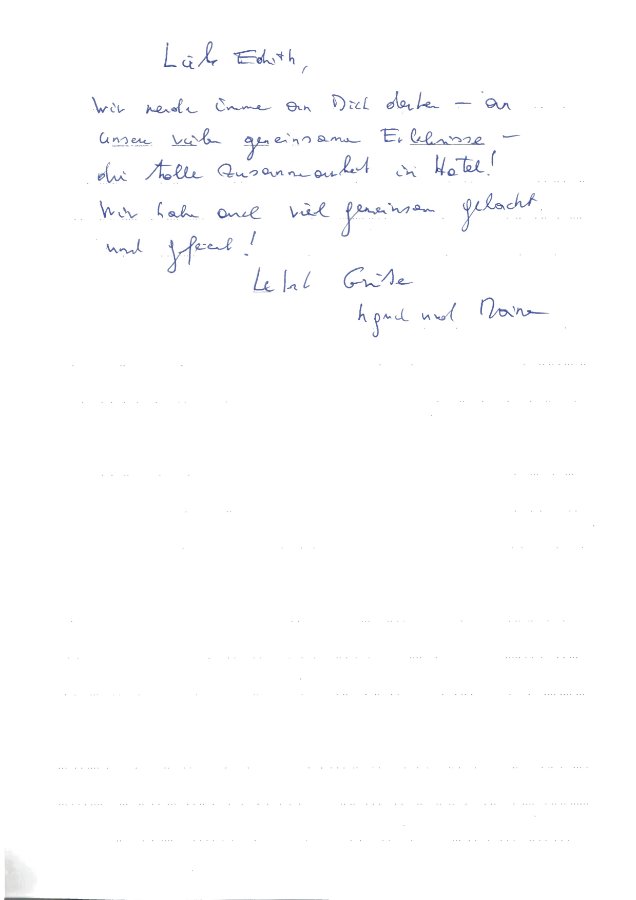 Liebe Edith,
Wir werden immer an Dich denken – an
unsere vielen gemeinsamen Erlebnisse –
die tolle Zusammenarbeit im Hotel!
Wir haben auch viel gemeinsam gelacht
und gefeiert!
Grüße
und